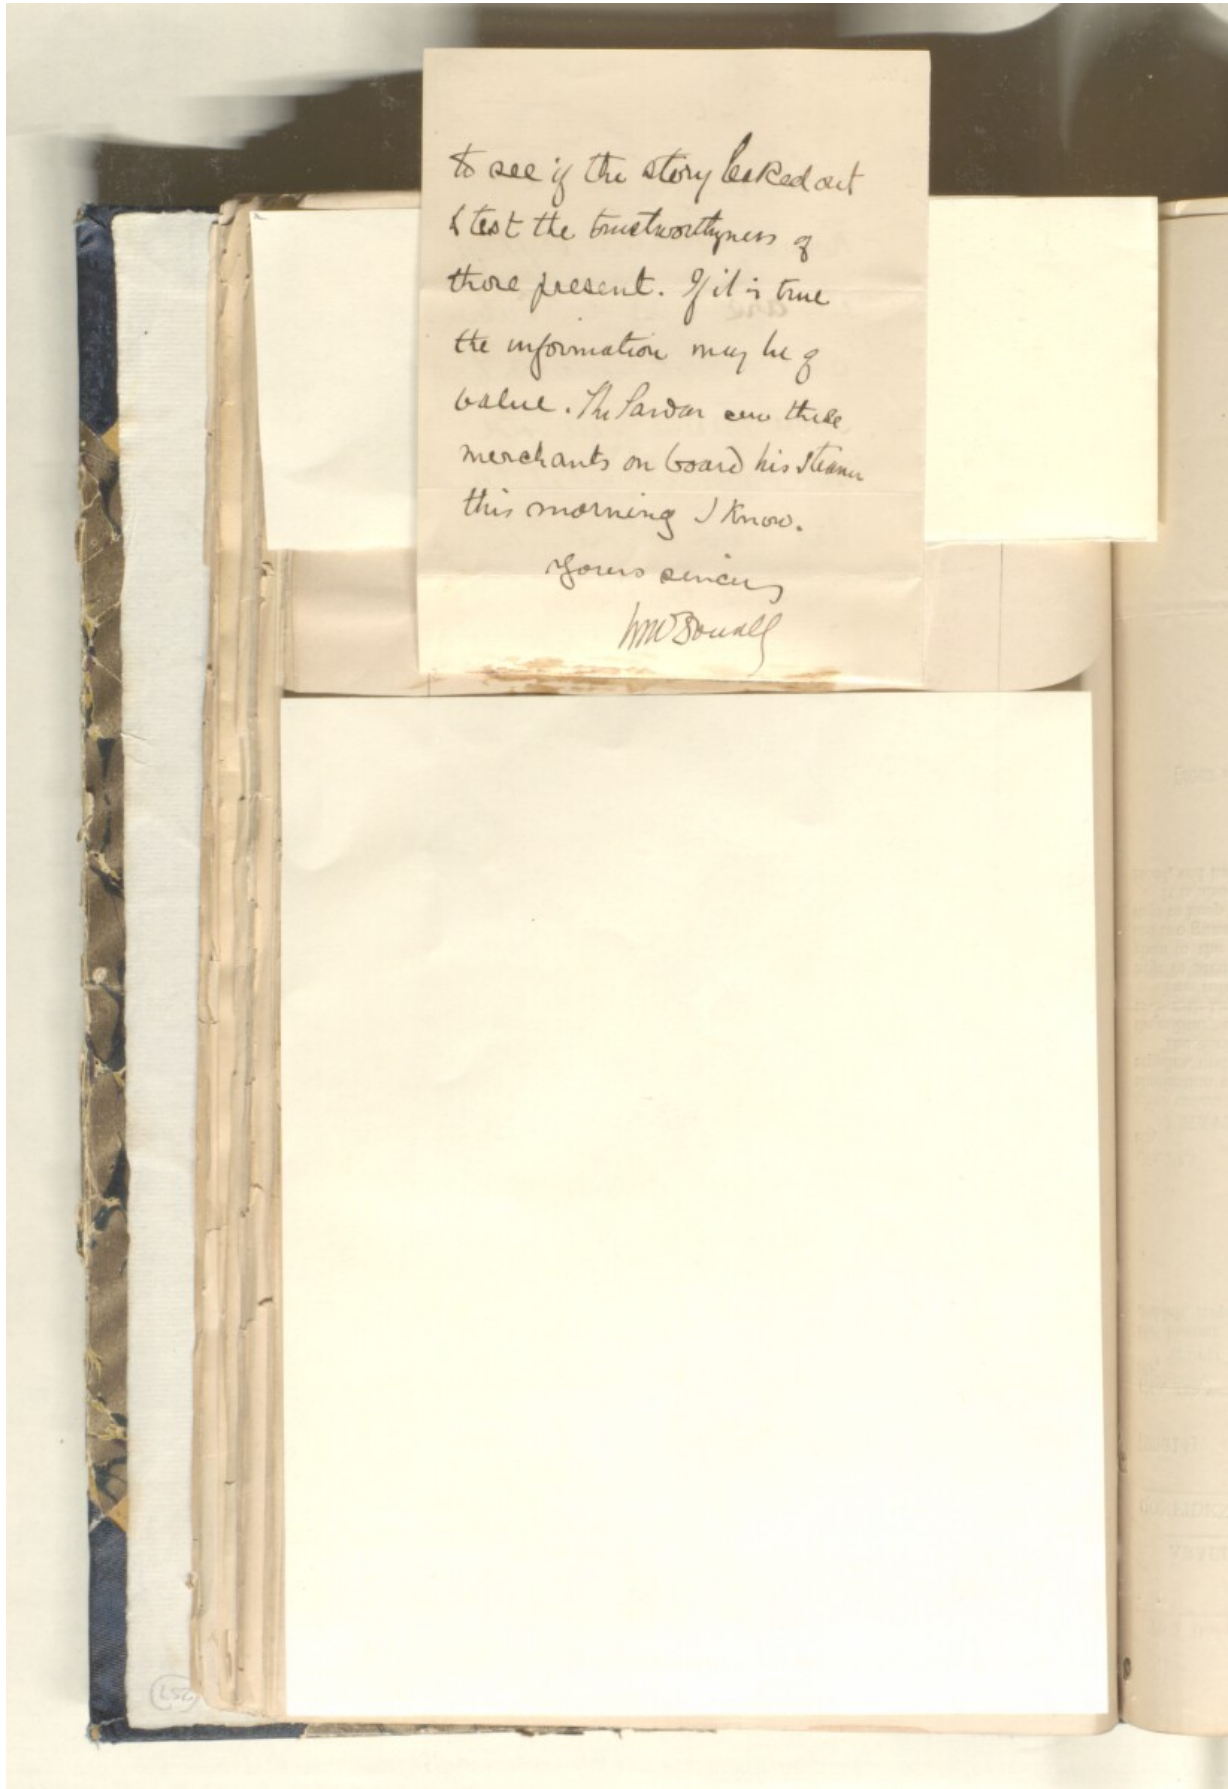 to see if the story leaked out
& test the trustworthyness of
those present. If it is true
the information may be of
value. The Sardar saw these
merchants on board his steamer
this morning I know.
Yours sincerely
257